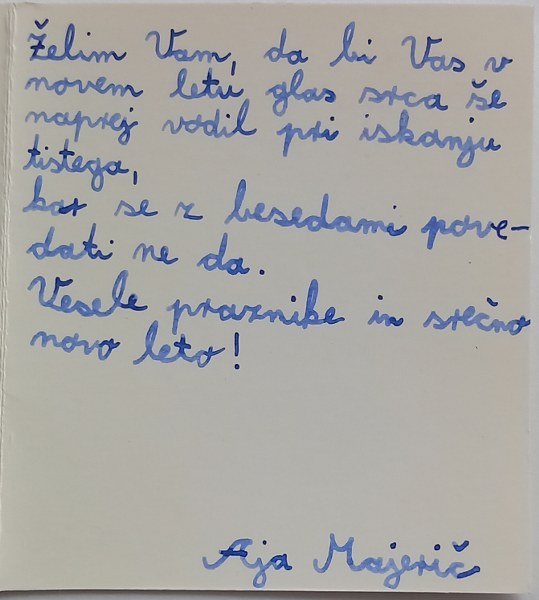 Želim Vam, da bi Vas v
novem letu glas srca še
naprej vodil pri iskanju
tistega,
kar se z besedami pove-
dati ne da.
Vesele praznike in srečno
novo leto!
Aja Majerič